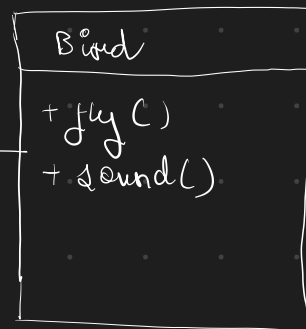 Bird
+ fly()
+ sound()